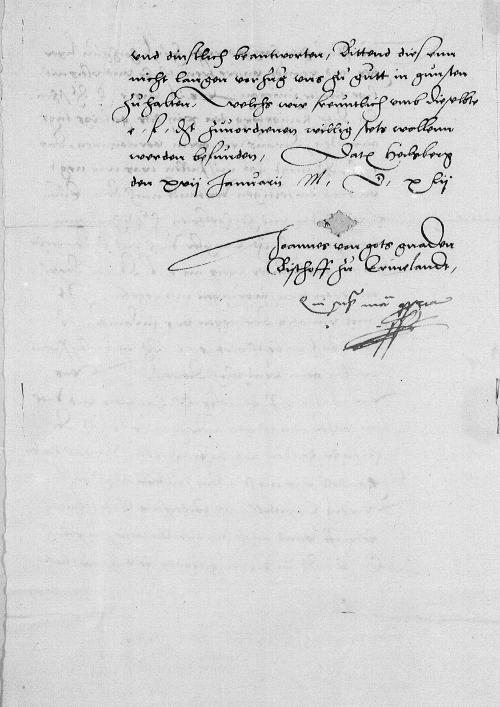 und dinstlich beantworten, Bittend diesenn
nicht langen vorzug uns zu gutt in gunsten
zu halten. Welchs wir freuntlich umb dieselbte
e. f. d. zuvordenen willig stets wollenn
werden befunden, Dat Heilsberg
den xvii Januarii M. D. xlii
Joannes von gots gnaden
Bischoff zu Ermelandt,